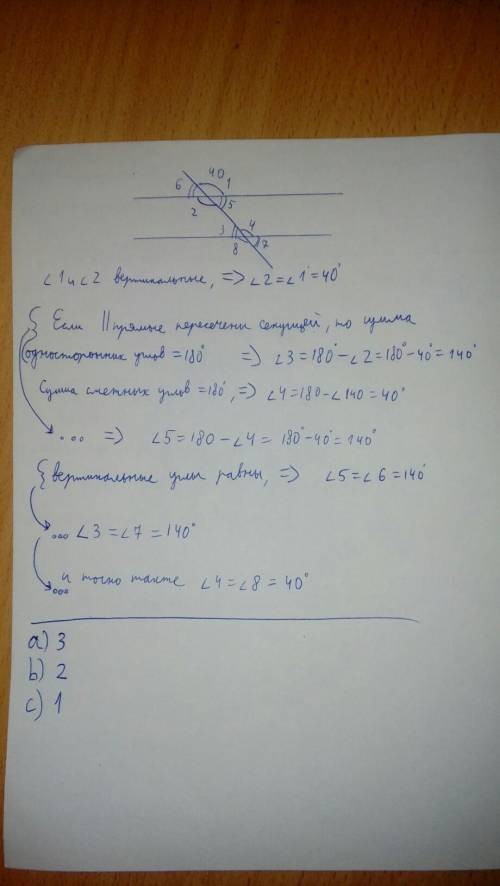 40
6 1
2 5
3 4
8 7
∠1 и ∠2 вертикальные, => ∠2 = ∠1 = 40°
{ Если || прямые пересечены секущей, то сумма
односторонних углов = 180° => ∠3 = 180° - ∠2 = 180° - 40° = 140°
Сумма смежных углов = 180°, => ∠4 = 180 - ∠140 = 40°
... => ∠5 = 180 - ∠4 = 180° - 40° = 140°
{ вертикальные углы равны, => ∠5 = ∠6 = 140°
... ∠3 = ∠7 = 140°
... и точно также ∠4 = ∠8 = 40°
a) 3
b) 2
c) 1